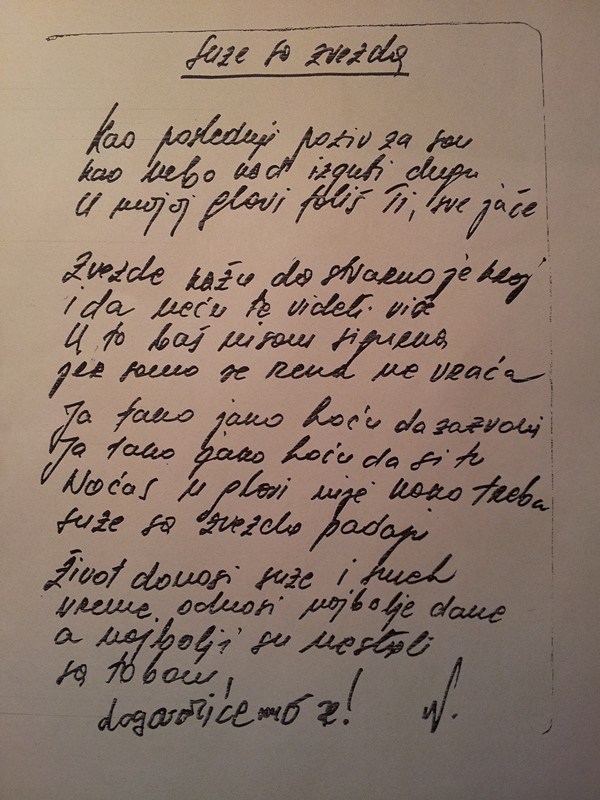 suze sa zvezda
Kao poslednji poziv za san
kao nebo kad izgubi dugu
U mojoj glavi fališ Ti, sve jače
Zvezde kažu da stvarno je kraj
i da neću te videti više
U to baš nisam sigurna
jer samo se rena ne vraća
Ja tako jako hoću da zazvoni
Ja tako jako hoću da si tu
Noćas u glavi nije kako treba
suze sa zvezda padaju
Život donosi suze i smeh
vreme odnosi najbolje dane
a najbolji su nestali
sa tobom,
dogovorićemo se! N.